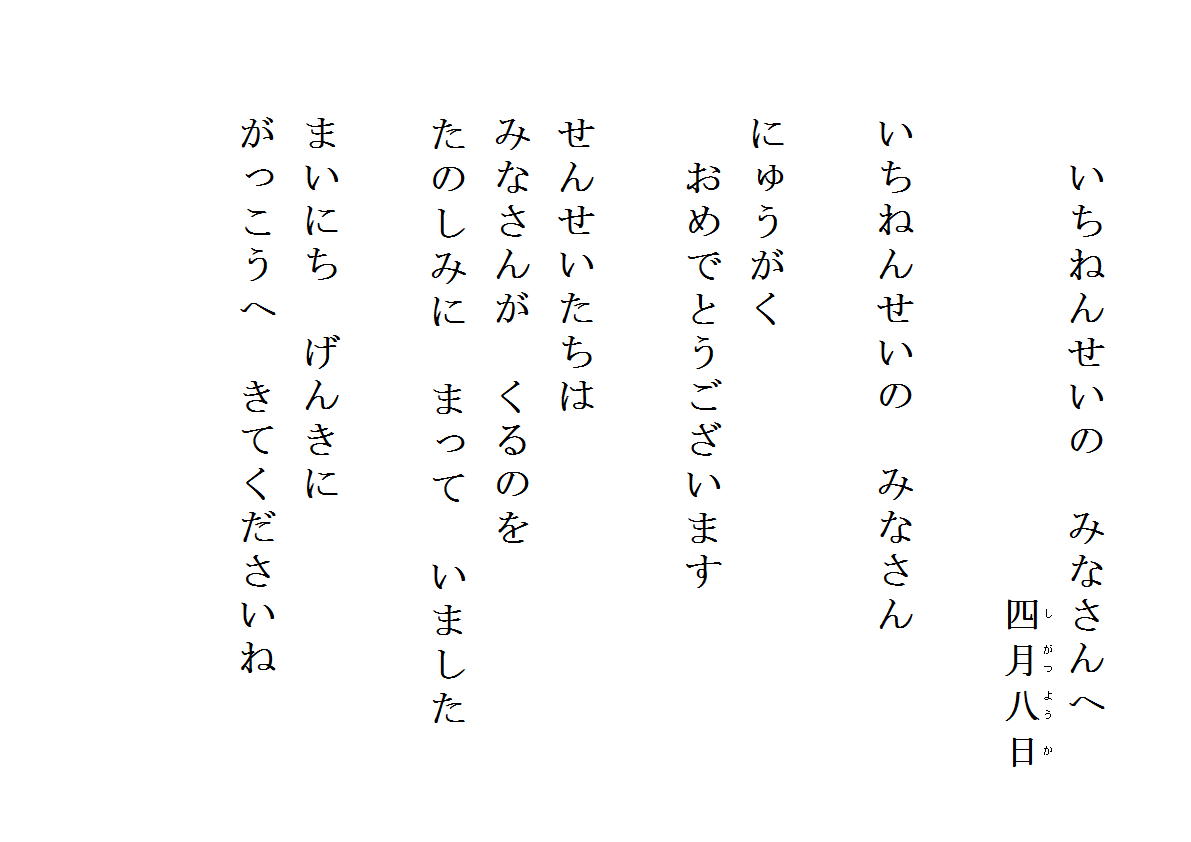 いちねんせいの　みなさんへ
四月八日
しがつようか
いちねんせいの　みなさん
にゅうがく
おめでとうございます
せんせいたちは
みなさんが　くるのを
たのしみに　まって　いました
まいにち　げんきに
がっこうへ　きてくださいね